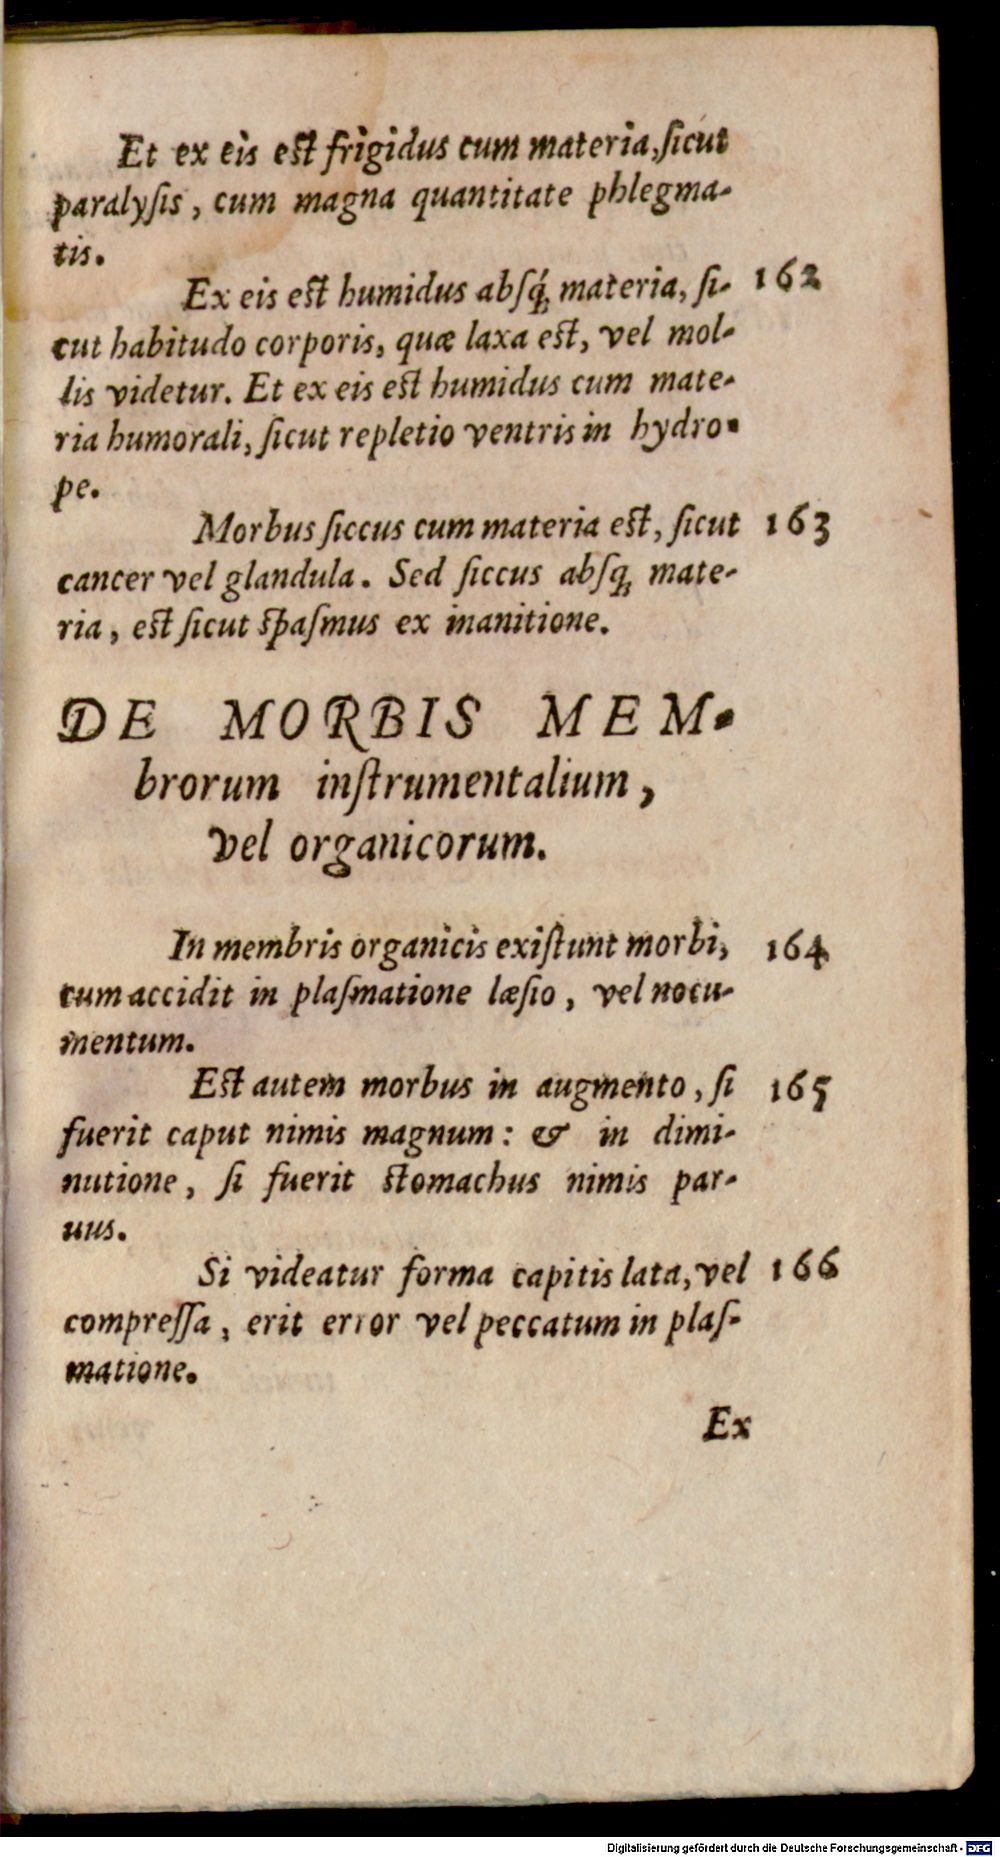 Et ex eis est frigidus cum materia, ſicut
paralyſis, cum magna quantitate phlegma-
tis.
Ex eis est humidus abſq́; materia, ſi- 162
cut habitudo corporis, quæ laxa est, vel mol-
lis videtur. Et ex eis est humidus cum mate-
ria humorali, ſicut repletio ventris in hydro-
pe.
Morbus ſiccus cum materia est, ſicut 163
cancer vel glandula. Sed ſiccus abſq; mate-
ria, est ſicut ſpaſmus ex inanitione.
DE MORBIS MEM-
brorum inſtrumentalium,
vel organicorum.
In membris organicis exiſtunt morbi, 164
cum accidit in plaſmatione læſio, vel nocu-
mentum.
Est autem morbus in augmento, ſi 165
fuerit caput nimis magnum: & in dimi-
nutione, ſi fuerit stomachus nimis par-
uus.
Si videatur forma capitis lata, vel 166
compreſſa, erit error vel peccatum in plaſ-
matione.
Ex
Digitalisierung gefördert durch die Deutsche Forschungsgemeinschaft - DFG